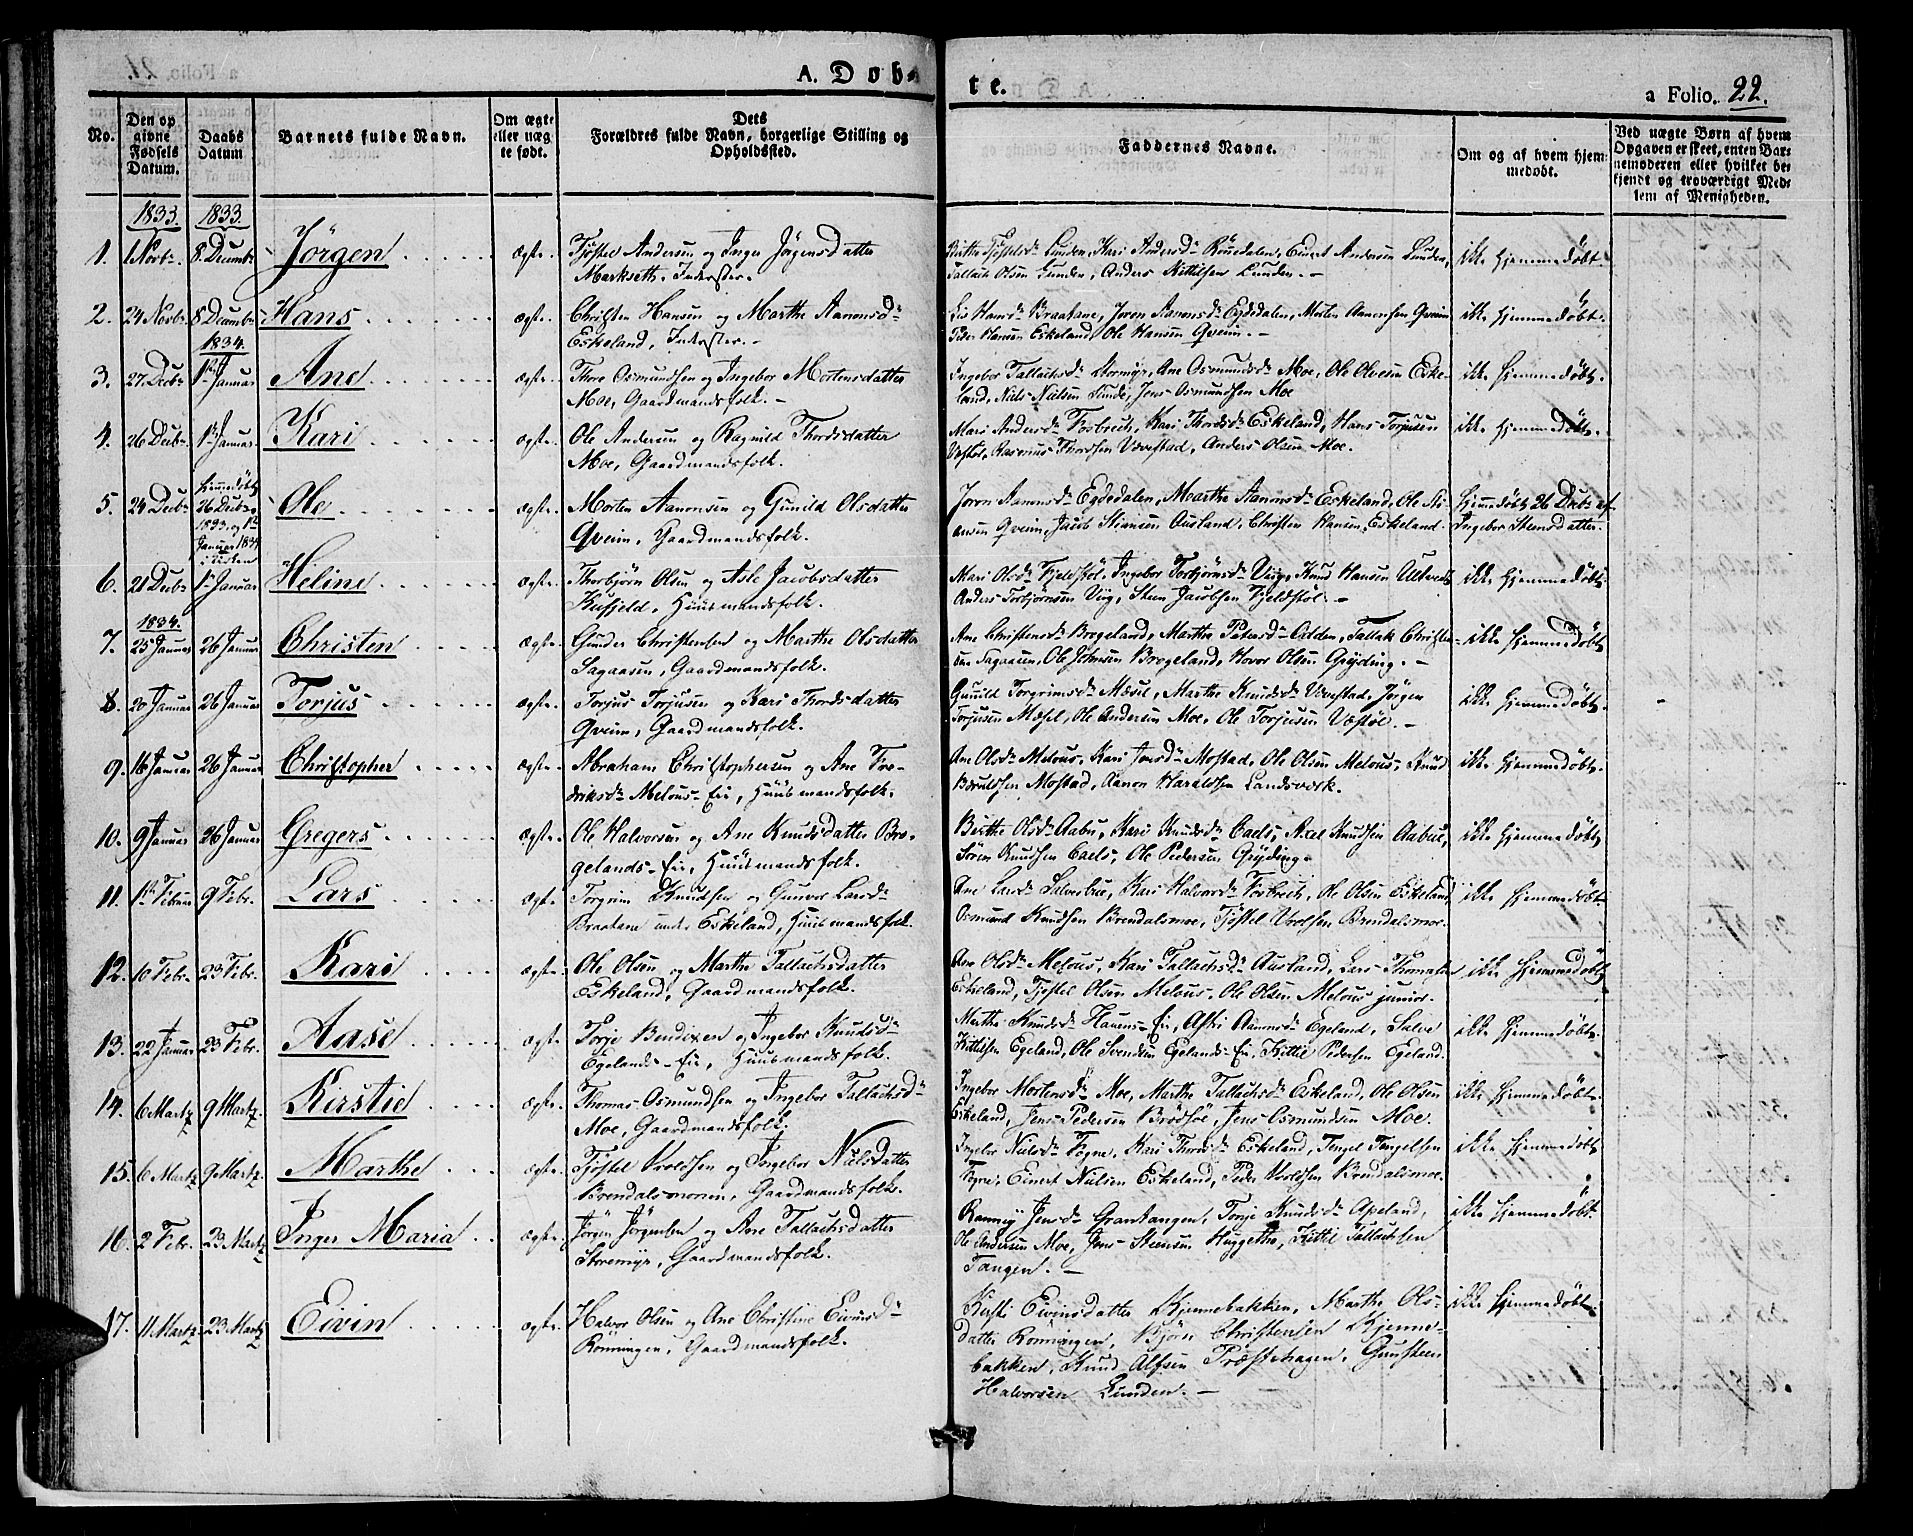 A. Døb-
te.
a Folio. 22.
No.
Den opgivne Fødsels Datum.
Daabs Datum
Barnets fulde Navn.
Om ægte eller uægte født.
Dets Forældres fulde Navn, borgerlige Stilling og Opholdssted.
Faddernes Navne.
Om og af hvem hjemmedøbt.
Ved uægte Børn af hvem Opgaven er skeet, enten Barnemoderen eller hvilket bekjendt og troværdigt Medlem af Menigheden.
1833. 1833.
1. 1 Novbr. 8 Decembr Jörgen ægte.
Tjöstel Andersen og Inger Jörgensdatter
Markseth, Inderster.
Birthe Tjöstelsd. Lunden, Kari Andersd. Einert Andersen Lunden,
Tallach Olsen Lunden, Anders Kittilsen Lunden.
ikke hjemmedöbt.
2. 24 Novbr. 8 Decembr Hans ægte.
Christen Hansen og Marthe Aanonsd.
Eskeland, Inderster.
Lis Hansd. Braatane, Joren Aanonsd. Egdedalen, Morten Aanonsen Qveim
Peder Hansen Eskeland, Ole Hansen Qveim.
ikke hjemmedöbt.
1834.
3. 27 Decbr. 1ste Januar Ane ægte.
Thore Osmundsen og Ingebor Mortensdatter
Moe, Gaardmandsfolk.
Ingebor Tallachsd. Stormÿr, Ane Osmundsd. Moe, Ole Olsen Eske-
land, Niels Nielsen Lunde, Jens Osmundsen Moe
ikke hjemmedöbt.
4. 26 Decbr. 1ste Januar Kari ægte.
Ole Andersen og Ragnild Thordsdatter
Moe, Gaardmandsfolk.
Mari Andersd. Fosbrech, Kari Thordsd. Eskeland, Hans Torjusen
Væstöl, Rasmus Thordsen Vævestad, Anders Olsen Moe.
ikke hjemmedöbt.
5. 24 Decbr. hjemmedöbt 26 Decbr. 1833, og 1ste Januar 1834 i Kirken Ole ægte.
Morten Aanonsen og Gunild Olsdatter
Qveim, Gaardmandsfolk.
Joren Aanonsd. Egdedalen, Marthe Aanonsd. Eskeland, Ole
Qveim, Jacob Stiansen Ausland, Christen Hansen Eskeland.
Hjemmedöbt 26 Decbr. af
Ingebor Stensdatter.
6. 21 Decbr. 1ste Januar Heline ægte.
Thorbjörn Olsen og Asle Jacobsdatter
Kufjeld, Huusmandsfolk.
Mari Olsd. Fjeldstöl, Ingebor Torbjörnsd. Viig, Knud Hansen
Anders Torbjörnsen Viig, Steen Jacobsen Fjeldstöl.
ikke hjemmedöbt.
1834.
7. 25 Januar 26 Januar Christen ægte.
Gunder Christensen og Marthe Olsdatter
Sagaasen, Gaardmandsfolk.
Ane Christensd. Brogeland, Marthe Pedersd. Odden, Tallak Christen-
sen Sagaasen, Ole Johnsen Brogeland, Hovor Olsen Gryding.
ikke hjemmedöbt.
8. 20 Januar 26 Januar Torjus ægte.
Torjus Torjusen og Kari Thordsdatter
Qveim, Gaardmandsfolk.
Gunild Torgrimsd. Mæsel, Marthe Knudsd. Vævestad, Jörgen
Torjusen Mæsel, Ole Andersen Moe, Ole Torjusen Væstöl.
ikke hjemmedöbt.
9. 16 Januar 26 Januar Christopher ægte.
Abraham Christophersen og Ane Fre-
driksd. Melous-Eie, Huusmandsfolk.
Ane Olsd. Melous, Kari Jensd. Mostad, Ole Olsen Melous, Knud
Berulfsen Mostad, Aanon Haraldsen Landsverk.
ikke hjemmedöbt.
10. 9 Januar 26 Januar Gregers ægte.
Ole Halvorsen og Ane Knudsdatter Bro-
gelands-Eie, Huusmandsfolk.
Birthe Olsd. Aabu, Kari Knudsd. Caels, Axel Knudsen Aabue,
Sören Knudsen Caels, Ole Pedersen Gryding.
ikke hjemmedöbt.
11. 1ste Februar 9 Febr. Lars ægte.
Torgrim Knudsen og Gunvor Larsd.
Braatane under Eskeland, Huusmandsfolk.
Ane Larsd. Salvesbue, Kari Halvorsd. Fosbrech, Ole Olsen Eskeland,
Osmund Knudsen Brendalsmoe, Tjöstel Vroldsen Brendalsmoe.
ikke hjemmedöbt.
12. 10 Febr. 23 Febr. Kari ægte.
Ole Olsen og Marthe Tallachsdatter
Eskeland, Gaardmandsfolk.
Ane Olsd. Melous, Kari Tallachsd. Ausland, Lars Thomasen
Eskeland, Tjöstel Olsen Melous, Ole Olsen Melous junior.
ikke hjemmedöbt.
13. 22 Januar 23 Febr. Aase ægte.
Torje Bendixen og Ingebor Knudsd.
Egelands-Eie, Huusmandsfolk.
Marthe Knudsd. Hauens-Eie, Aasri Aanonsd. Egeland, Salve
Kittilsen Egeland, Ole Svendsen Egelands-Eie, Kittil Pedersen Egeland.
ikke hjemmedöbt.
14. 6 Martz 9 Martz. Kirstie ægte.
Thomas Osmundsen og Ingebor Tallachsd.
Moe, Gaardmandsfolk.
Ingebor Mortensd. Moe, Marthe Tallachsd. Eskeland, Ole Olsen
Eskeland, Jens Pedersen Brödsöe, Jens Osmundsen Moe.
ikke hjemmedöbt.
15. 6 Martz 9 Martz. Marthe ægte.
Tjöstel Vroldsen og Ingebor Nielsdatter
Brendalsmonen, Gaardmandsfolk.
Ingebor Nielsd. Fogne, Kari Thordsd. Eskeland, Tengel Tengelsen
Fogne, Einert Nielsen Eskeland, Peder Vroldsen Brendalsmoe.
ikke hjemmedöbt.
16. 2 Febr. 23 Martz Inger Maria ægte.
Jörgen Jörgensen og Ane Tallachsdatter
Storemÿr, Gaardmandsfolk.
Rannvig Jensd. Grantangen, Torje Knudsd. Apeland,
Ole Andersen Moe, Jens Steensen Huggethe, Kittil Tallachsen
Tangen.
ikke hjemmedöbt.
17. 11 Martz 23 Martz Eivin ægte.
Halvor Olsen og Ane Christine Eivinsd.
Rönningen, Gaardmandsfolk.
Kirsti Eivinsdatter Kjennebakken, Marthe Ols-
datter Rönningen, Björn Christensen Kjenne-
bakken, Knud Alfsen Præsthagen, Gunsteen
Halvorsen Lunden.
ikke hjemmedöbt.